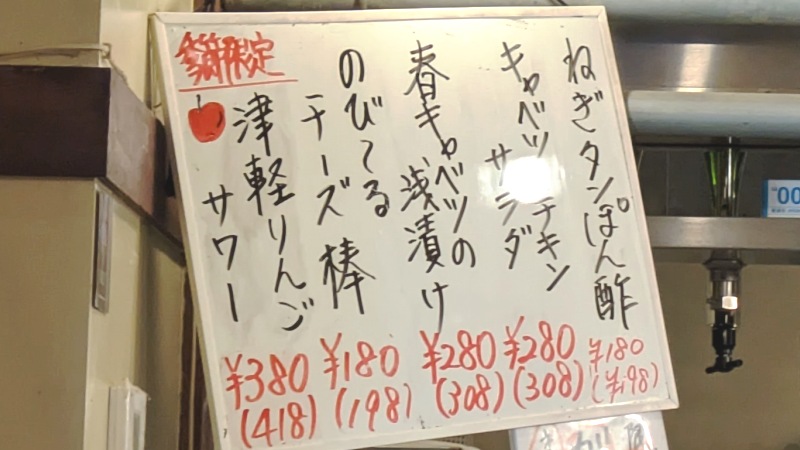 ねぎタンぽん酢
¥180
(¥198)
キャベツチキン
サラダ
¥280
(308)
春キャベツの
浅漬け
¥280
(308)
のび〜る
チーズ棒
¥180
(198)
限定
津軽りんご
サワー
¥380
(418)
00